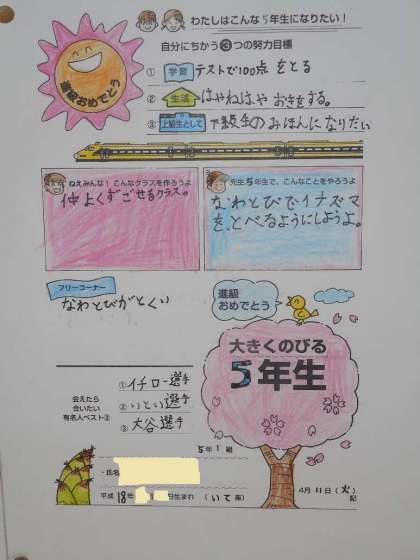 わたしはこんな5年生になりたい!
進級おめでとう
自分にちかう❸つの努力目標
① 学習 テストで100点をとる
② 生活 はやねはやおきをする。
③ 上級生として 下級生のみほんになりたい
ねえみんな!こんなクラスを作ろうよ
仲よくすごせるクラス。
先生5年生で、こんなことをやろうよ
なわとびでイナズマ
を、とべるようにしようよ。
フリーコーナー
なわとびがとくい
進級
おめでとう
大きくのびる
5年生
会えたら
会いたい
有名人ベスト③
①イチロー選手
②いとい選手
③大谷選手
5年1組
・氏名
平成18年 日生まれ(いて座)
4月11日(火)記